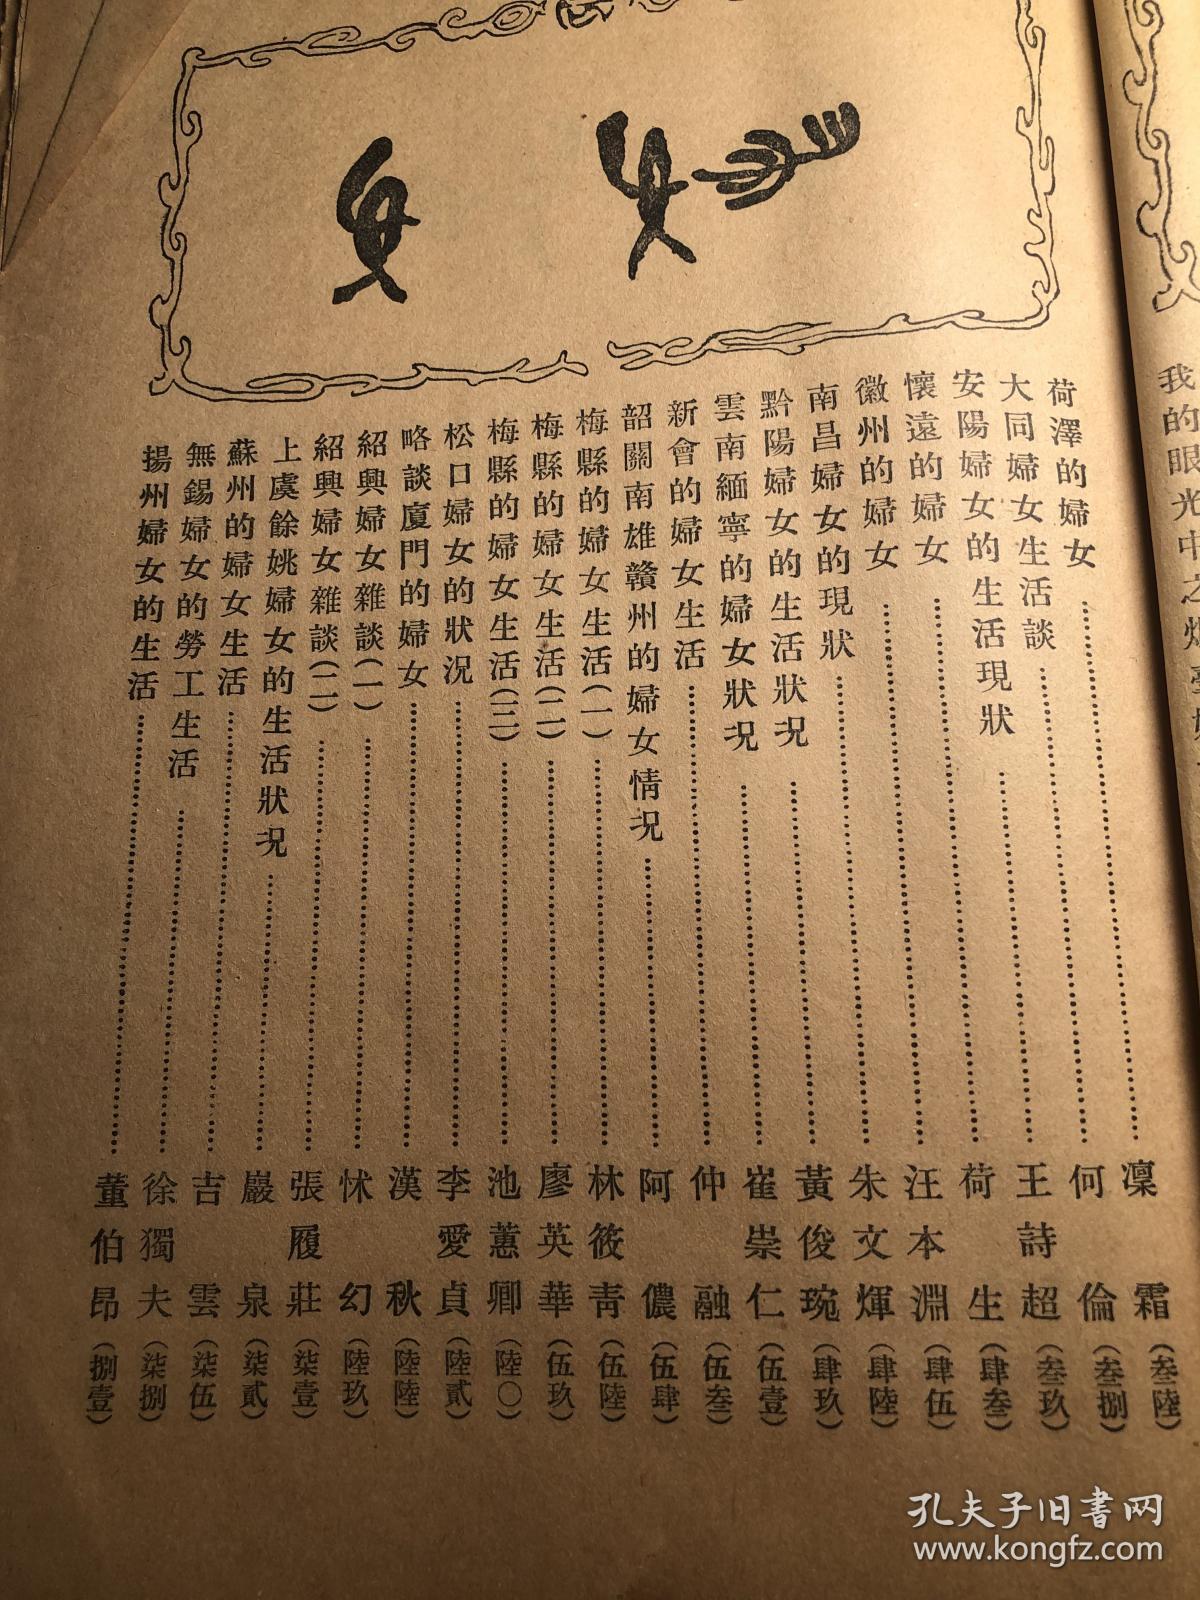 婦女
荷澤的婦女……凜霜(叁陸)
大同婦女生活談……何倫(叁捌)
安陽婦女的生活現狀……王詩超(叁玖)
懷遠的婦女……荷生(肆叁)
徽州的婦女……汪本淵(肆伍)
南昌婦女的現狀……朱文煇(肆陸)
黔陽婦女的生活狀况……黃俊琬(肆玖)
雲南緬寧的婦女狀况……崔崇仁(伍壹)
新會的婦女生活……仲融(伍叁)
韶關南雄贛州的婦女情况……阿儂(伍肆)
梅縣的婦女生活(一)……林筱青(伍陸)
梅縣的婦女生活(二)……廖英華(伍玖)
梅縣的婦女生活(三)……池蕙卿(陸〇)
松口婦女的狀况……李愛貞(陸貳)
略談廈門的婦女……漢秋(陸陸)
紹興婦女雜談(一)……怵幻(陸玖)
紹興婦女雜談(二)……張履莊(柒壹)
上虞餘姚婦女的生活狀况……巖泉(柒貳)
蘇州的婦女生活……吉雲(柒伍)
無錫婦女的勞工生活……徐獨夫(柒捌)
揚州婦女的生活……董伯昂(捌壹)
我的眼光中之
孔夫子旧书网
www.kongfz.com